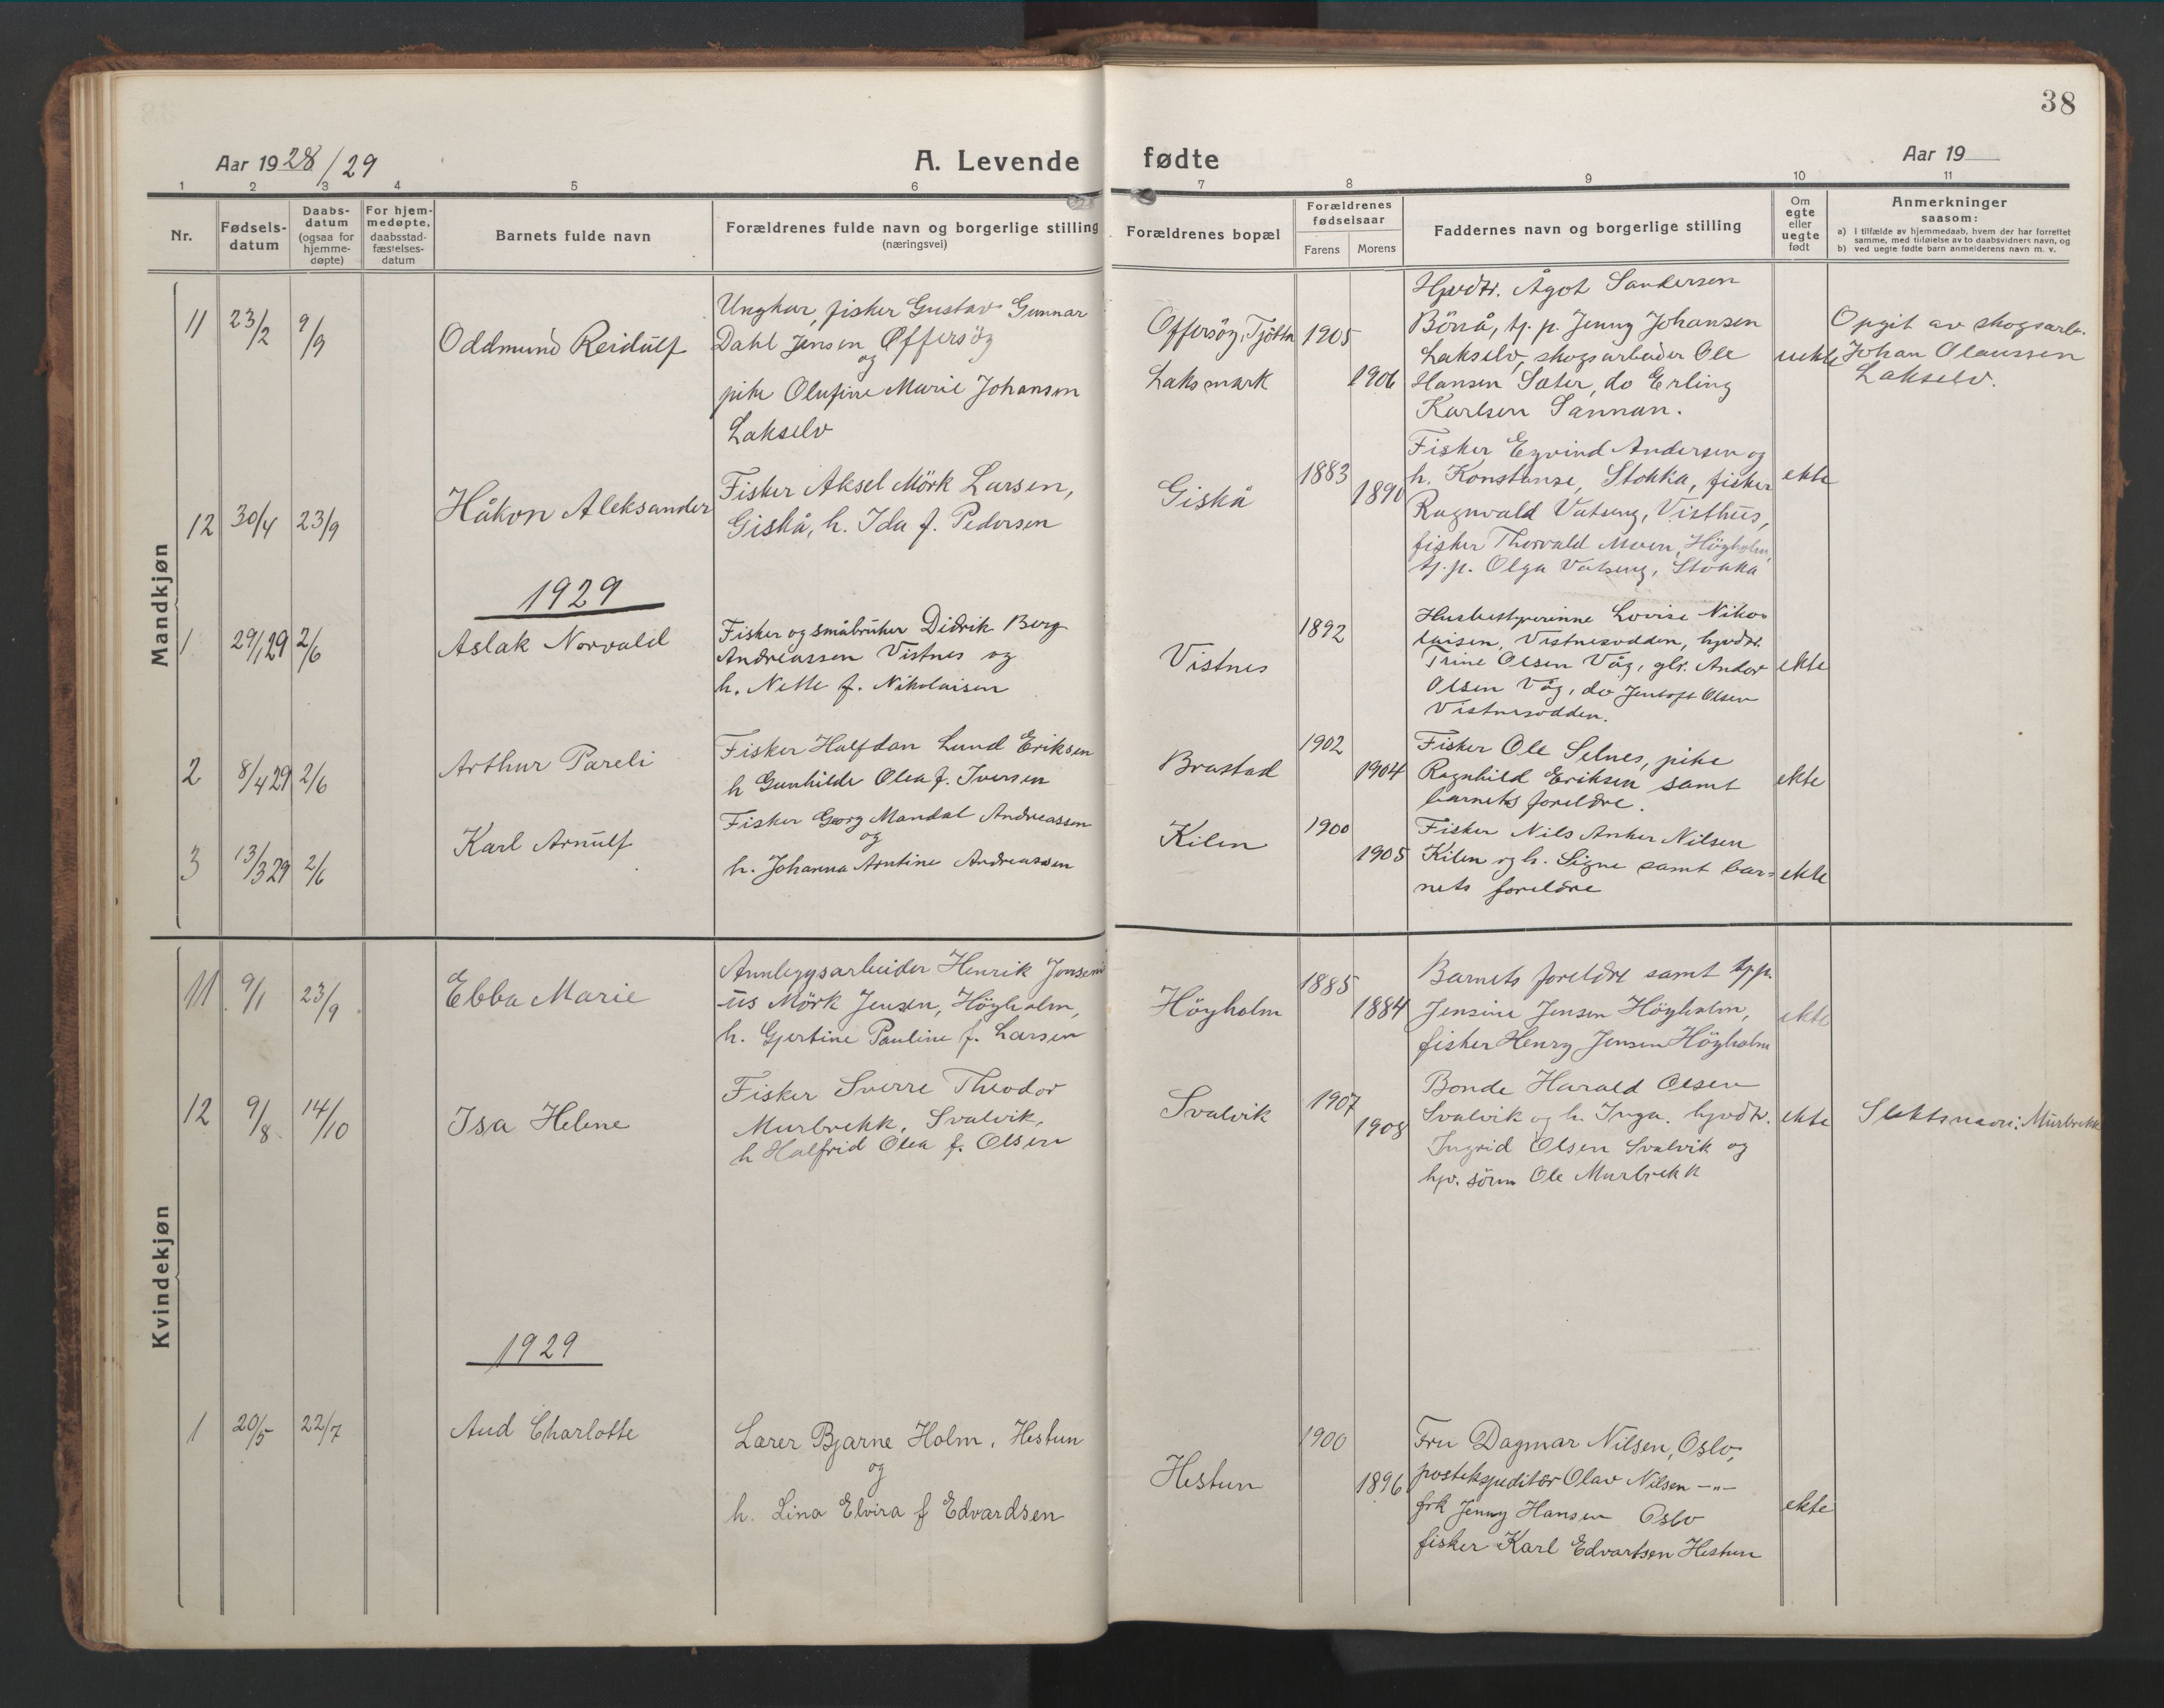 38
Aar 1928/29
A. Levende fødte
Aar 19
1 2 3 4 5 6 7 8 9 10 11
Nr.
Fødsels-
datum
Daabs-
datum
(ogsaa for
hjemme-
døpte)
For hjem-
medøpte,
daabsstad-
fæstelses-
datum
Barnets fulde navn
Forældrenes fulde navn og borgerlige stilling
(næringsvei)
Forældrenes bopæl
Forældrenes
fødselsaar
Farens Morens
Faddernes navn og borgerlige stilling
Om
egte
eller
uegte
født
Anmerkninger
saasom:
a) i tilfælde av hjemmedaab, hvem der har forrettet
samme, med tilføielse av to daabsvidners navn, og
b) ved uegte fødte barn anmelderens navn m. v.
Mandkjøn
11 23/2 9/9
Oddmund Reidulf
Ungkar, fisker Gustav Gunnar
Dahl Jensen Offersöy
og
pike Olufine Marie Johansen
Lakselv
Offersöy, Tjötta
Laksmark
1905
1906
Hpvdtr. Ågot Sandersen
Bönå, tj. p. Jenny Johansen
Lakselv, skogsarbeider Ole
Hansen Sæter, do Erling
Karlsen Sannan.
uekte
Opgit av skogsarb.
Johan Olaussen
Lakselv.
12 30/4 23/9
Håkon Aleksander
Fisker Aksel Mörk Larsen,
Giskå, h. Ida f. Pedersen
Giskå
1883
1890
Fisker Eyvind Andersen og
h. Konstanse, Stokka, fisker
Ragnvald Vatseng, Visthus,
fisker Thorvald Moen, Höyholm,
tj. p. Olga Vatseng, Stokka
ekte
1929
1 29/1 29 2/6
Aslak Norvald
Fisker og småbruker Didrik Berg
Andreassen Vistnes og
h. Nelle f. Nikolaisen
Vistnes
1892
Husbestyrerinne Lovise Niko-
laisen, Vistnesodden, hpvdtr.
Trine Olsen Våg, gbr. Andor
Olsen Våg, do Jentoft Olsen
Vistnesodden.
ekte
2 8/4 29 2/6
Arthur Pareli
Fisker Halfdan Lund Eriksen
h Gunhilde Olea f. Iversen
Brastad
1902
1904
Fisker Ole Selnes, pike
Ragnhild Eriksen samt
barnets foreldre.
ekte
3 13/3 29 2/6
Karl Arnulf
Fisker Georg Mandal Andreassen
og
h. Johanna Arntine Andreassen
Kilen
1900
1905
Fisker Nils Anker Nilsen
Kilen og h. Signe samt bar-
nets foreldre
ekte
Kvindekjøn
11 9/1 23/9
Ebba Marie
Annleggsarbeider Henrik Jonseni
-us Mörk Jensen, Höyholm,
h. Gjertine Pauline f. Larsen
Höyholm
1885
1884
Barnets foreldre samt tj.p.
Jensine Jensen Höyholm,
fisker Henry Jensen Höyholm
ekte
12 9/8 14/10
Isa Helene
Fisker Sverre Theodor
Murbrekk, Svalvik,
h Halfrid Olea f. Olsen
Svalvik
1907
1908
Bonde Harald Olsen
Svalvik og h. Inga. hpvdtr.
Ingrid Olsen Svalvik og
hpv. sönn Ole Murbrekk
ekte
Slektsnavn: Murbrekk
1929
1 20/5 22/7
Aud Charlotte
Lærer Bjarne Holm, Hestun
og
h. Lina Elvira f Edvardsen
Hestun
1900
1896
Fru Dagmar Nilsen, Oslo,
postekspeditör Olav Nilsen -"-
frk Jenny Hansen Oslo
fisker Karl Edvartsen Hestun
ekte